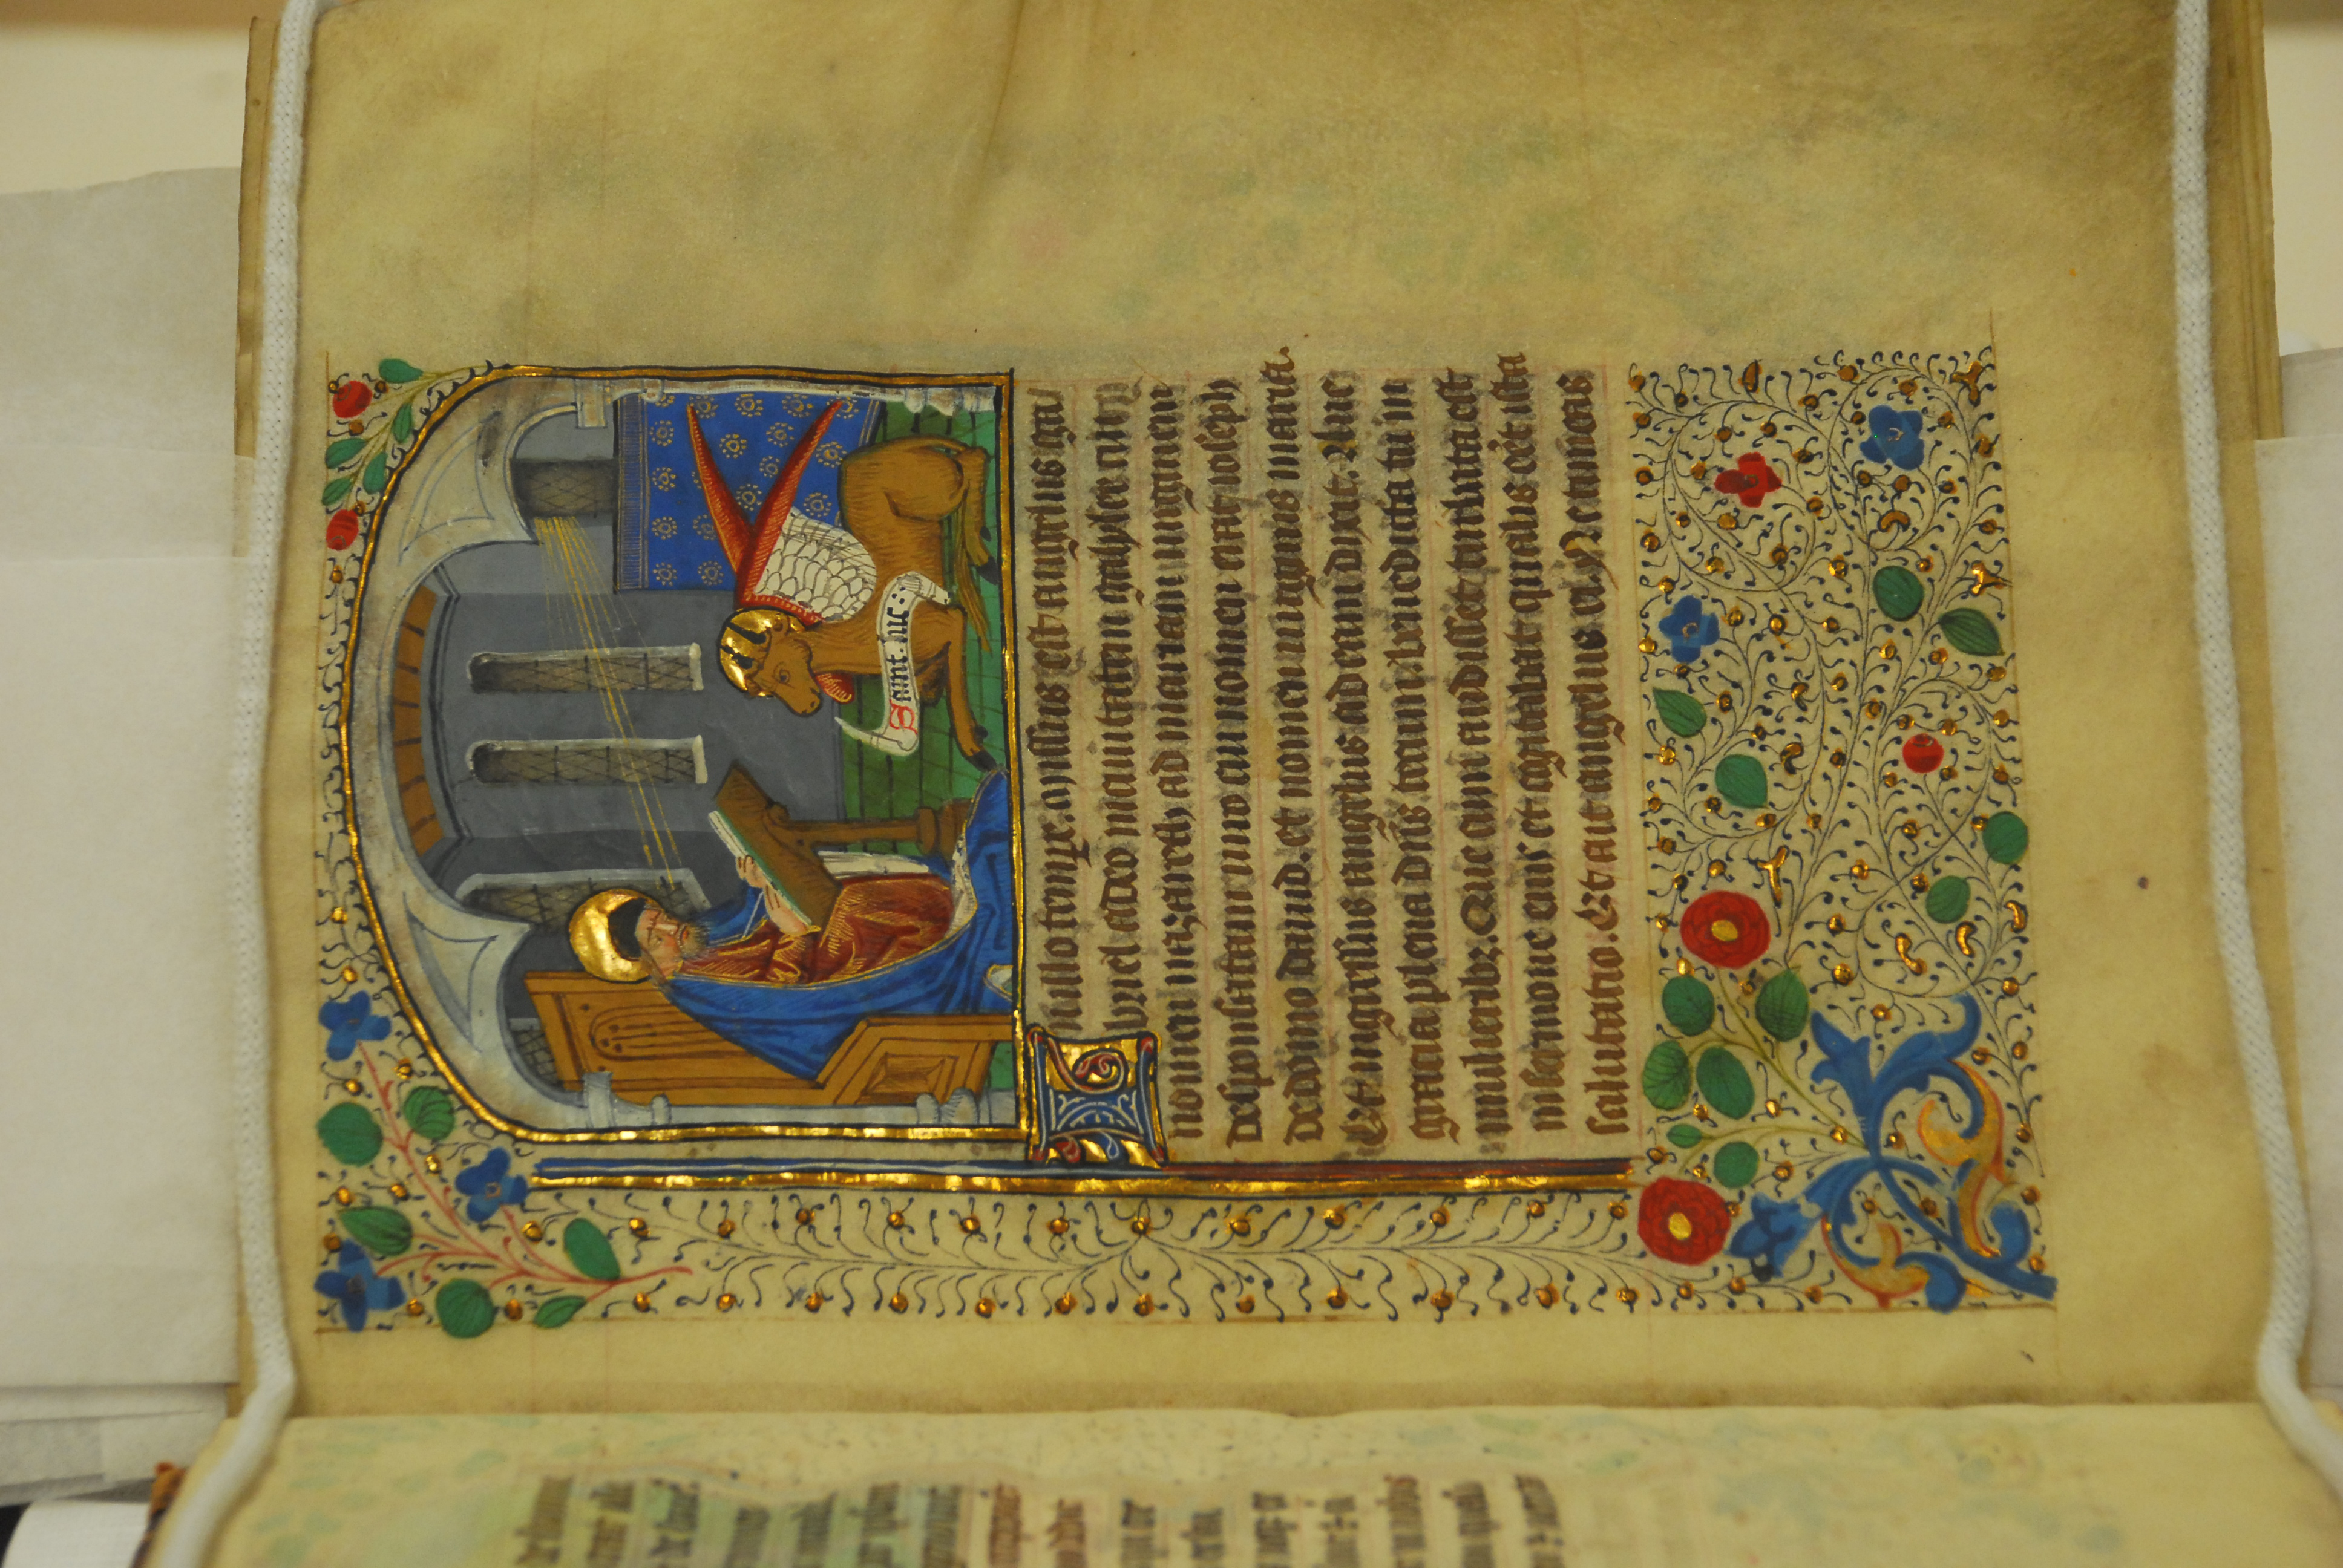 Saint. luc:
In illo tempr̃. Missus est angelus ga
briel a deo in ciuitatem galylee cui
nomen nazareth ad mariam uirginem
desponsatam uiro cui nomen erat ioseph
de domo dauid. et nomen uirginis maria.
Et ingressus angelus ad eam dixit. Aue
gracia plena dñs tecum: benedicta tu in
mulieribz. Que cum audisset turbata est
in sermone eius et cogitabat qualis eēt ista
salutatio. Et ait angelus ei. Ne timeas